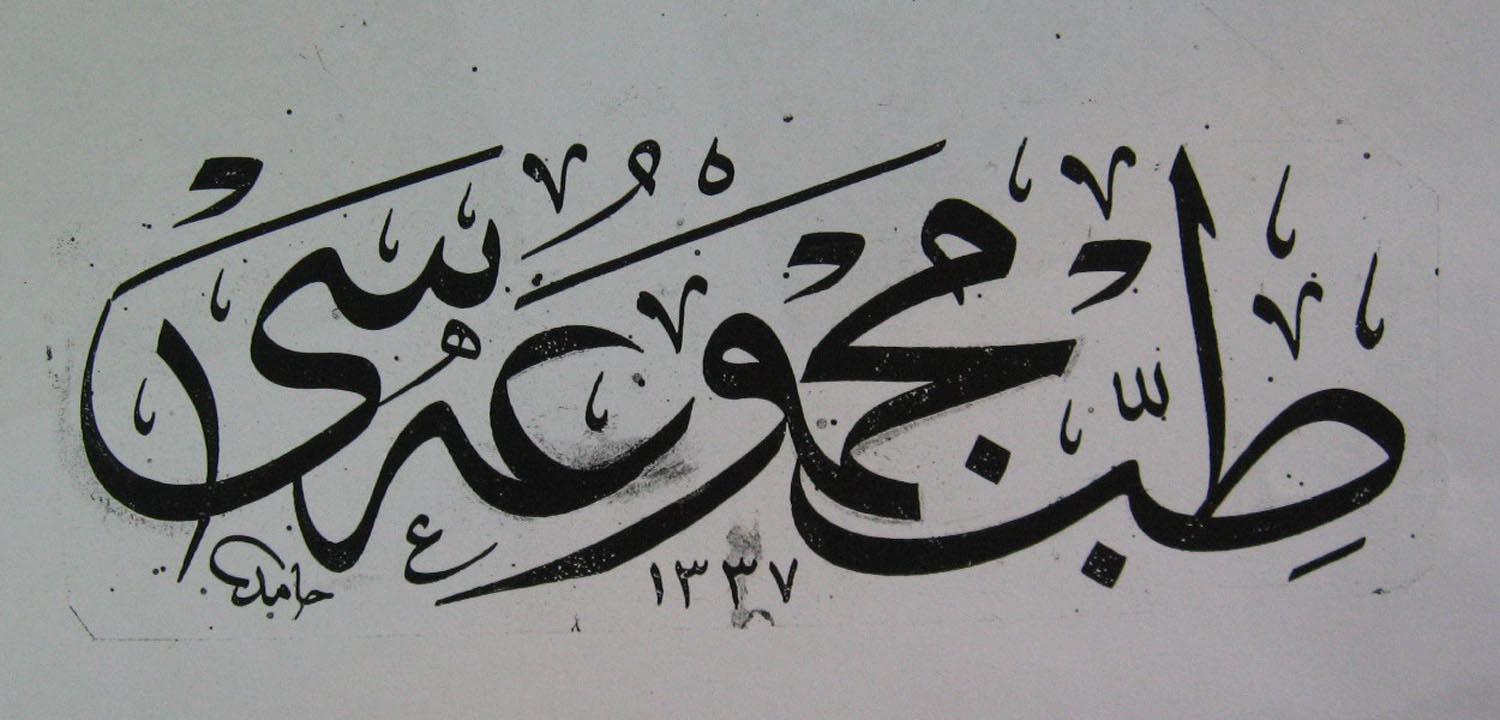 طِبّ مجموعه‌سی
١٣٣٧
حامد